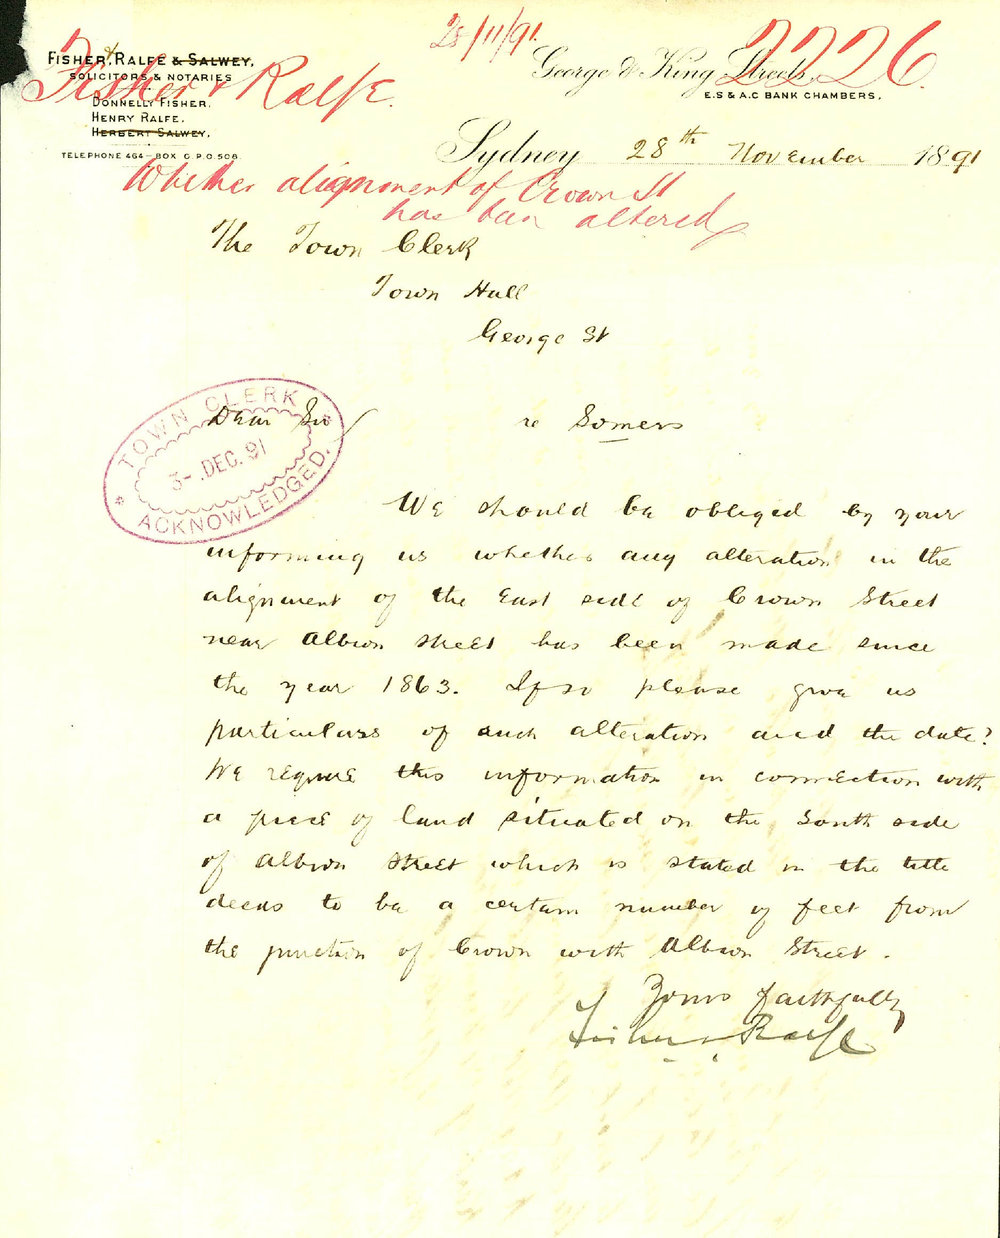 28/11/91
2226
FISHER, & RALFE & SALWEY,
SOLICITORS & NOTARIES
Fisher & Ralfe.
DONNELLY FISHER.
HENRY RALFE.
HERBERT SALWEY.
TELEPHONE 464 - BOX G.P.O. 508.
George & King Streets,
E.S & A.C BANK CHAMBERS.
Sydney 28th November 1891
Whether alignment of Crown St
has been altered
The Town Clerk
Town Hall
George St
TOWN CLERK
3 - DEC. 91
ACKNOWLEDGED.
Dear Sir
re Somers
We should be obliged by your
informing us whether any alteration in the
alignment of the East side of Crown Street
near Albion Street has been made since
the year 1863. If so please give us
particulars of such alteration and the date?
We require this information in connection with
a piece of land situated on the South side
of Albion Street which is stated in the title
deeds to be a certain number of feet from
the junction of Crown with Albion Street.
Yours faithfully
Fisher & Ralfe